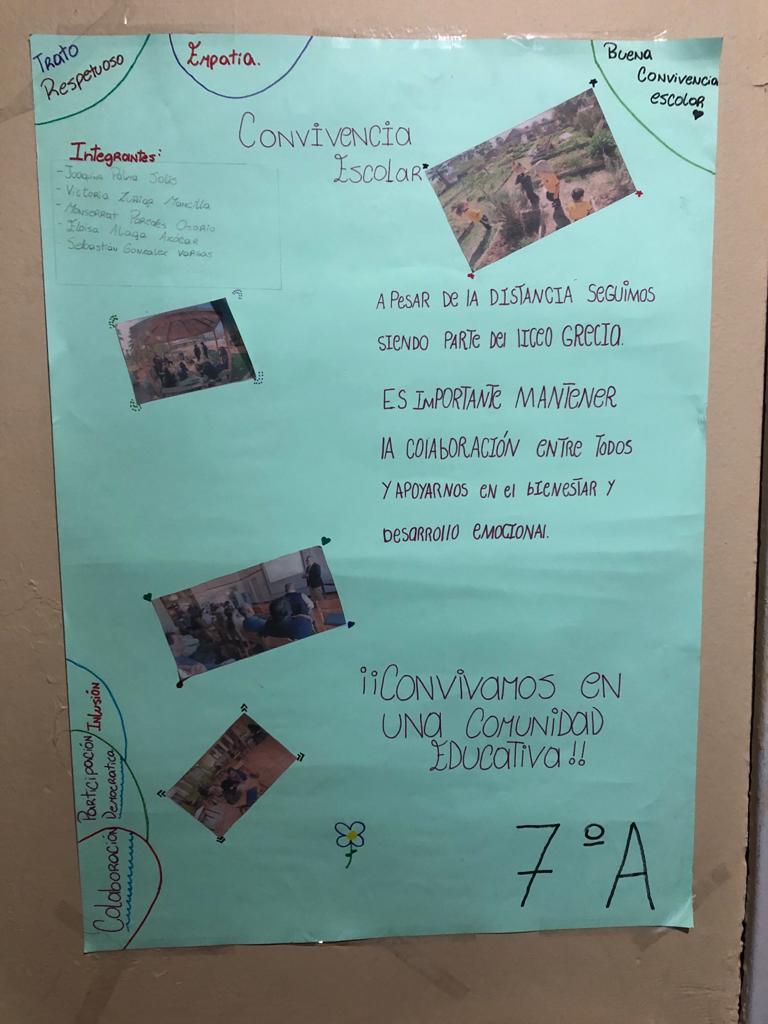 Trato
Respetuoso
Empatía.
Buena
Convivencia
escolar
Convivencia
Escolar
Integrantes:
- Joaquina Palma Solis
- Victoria Zuñiga Mancilla
- Monserrat Paredes Osorio
- Eloisa Alaga Axócar
- Sebastián Gonzalez Vargas
A PESAR DE LA DISTANCIA SEGUIMOS
SIENDO PARTE DEL LICEO GRECIA.
ES IMPORTANTE MANTENER
LA COLABORACIÓN ENTRE TODOS
Y APOYARNOS EN EL BIENESTAR Y
DESARROLLO EMOCIONAL.
¡¡CONVIVAMOS EN
UNA COMUNIDAD
EDUCATIVA!!
Inlusión
Participación
Democratica
Colaboración
7ºA